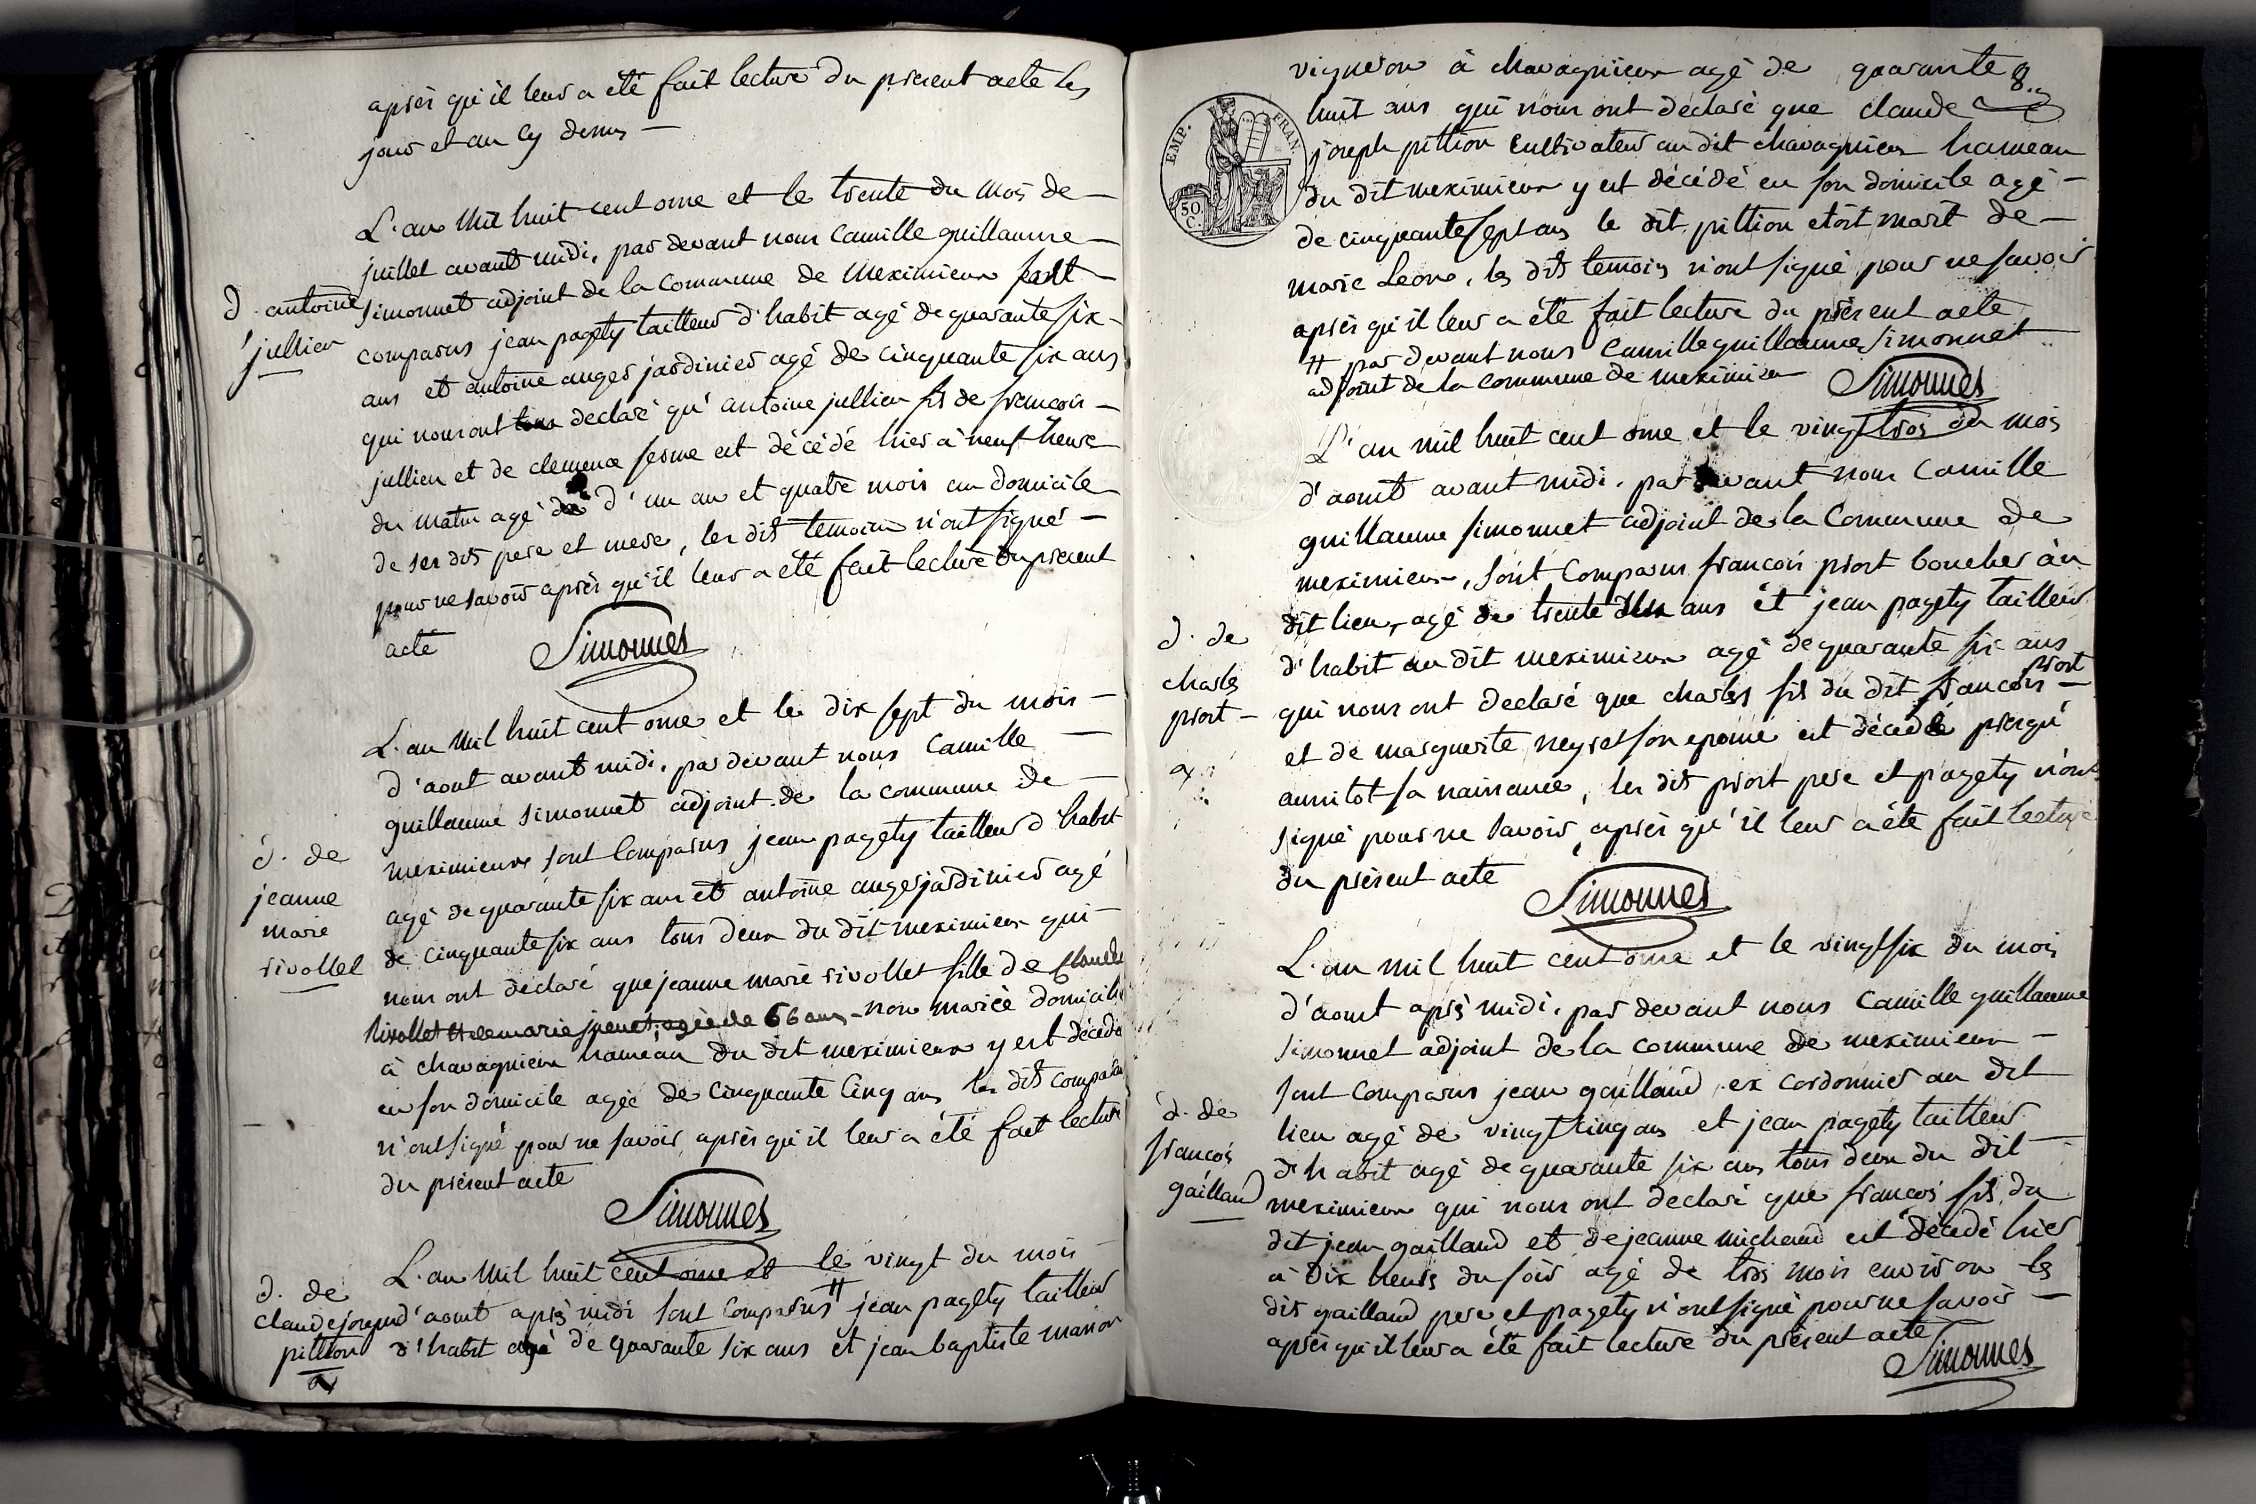 après qu'il leur a été fait lecture du present acte les
jour et an cy dessus —
L'an mil huit cent onze et le trente du mois de —
juillet avant midi, par devant nous Camille guillaume —
d. antoine
jullien
simonnet adjoint de la Commune de meximieux sont —
comparus jean pagety tailleur d'habit agé de quarante six —
ans et antoine auger jardinier agé de cinquante six ans
qui nous ont declaré qu'antoine jullien fils de francois —
jullien et de clemence ferme est décédé hier à neuf heure
du matin agé d'un an et quatre mois au domicile
de ses dits pere et mere, les dits temoins n'ont signé —
pour ne savoir après qu'il leur a été fait lecture du present
acte
Simonnet
L'an mil huit cent onze et le dix sept du mois —
d'aout avant midi, par devant nous Camille —
guillaume simonnet adjoint de la commune de —
d. de
jeanne
marie
rivollet
meximieux sont Comparus jean pagety tailleur d'habit
agé de quarante six ans et antoine auger jardinier agé
de cinquante six ans tous deux du dit meximieux qui —
nous ont déclaré que jeanne marie rivollet fille de Claude
Rivollet et de marie juenet, agée de 66 ans non mariée domiciliée
à chavagnieux hameau du dit meximieux y est décédé
en son domicile agée de cinquante cinq ans les dits comparus
n'ont signé pour ne savoir, après qu'il leur a été fait lecture
du présent acte
Simonnet
d. de
claude joseph
pittion
L'an mil huit cent onze et le vingt du mois
d'aout après midi sont comparus # jean pagety tailleur
d'habit agé de quarante six ans et jean baptiste marion
8.
EMP. FRAN.
50. C.
vigneron à chavagnieux agé de quarante
huit ans qui nous ont déclaré que claude
joseph pittion Cultivateur au dit chavagnieux hameau
du dit meximieux y est décédé en son domicile agé —
de cinquante sept ans le dit pittion etoit marit de —
marie Leone, les dits temoins n'ont signé pour ne savoir
après qu'il leur a été fait lecture du présent acte
# par devant nous Camille guillaume Simonnet
adjoint de la commune de meximieux
Simonnet
L'an mil huit cent onze et le vingt trois du mois
d'aout avant midi, par devant nous Camille
guillaume simonnet adjoint de la Commune de
meximieux, sont Comparus francois priort boucher au
d. de
charles
priort —
dit lieu, agé de trente deux ans et jean pagety tailleur
d'habit au dit meximieux agé de quarante six ans
qui nous ont declaré que charles fils du dit francois priort —
et de marguerite neyret son epouse est décédé presqu'
aussitot sa naissance, les dits priort pere et pagety n'ont
signé pour ne savoir, après qu'il leur a été fait lecture
du présent acte
Simonnet
L'an mil huit cent onze et le vingt six du mois
d'aout après midi, par devant nous Camille guillaume
simonnet adjoint de la commune de meximieux —
d. de
francois
gailland
sont comparus jean gailland, ex cordonnier au dit
lieu agé de vingt cinq ans et jean pagety tailleur
d'habit agé de quarante six ans tous deux du dit —
meximieux qui nous ont declaré que francois fils du
dit jean gailland et de jeanne michaud est décédé hier
à dix heures du soir agé de trois mois environ les
dits gailland pere et pagety n'ont signé pour ne savoir —
après qu'il leur a été fait lecture du présent acte
Simonnet